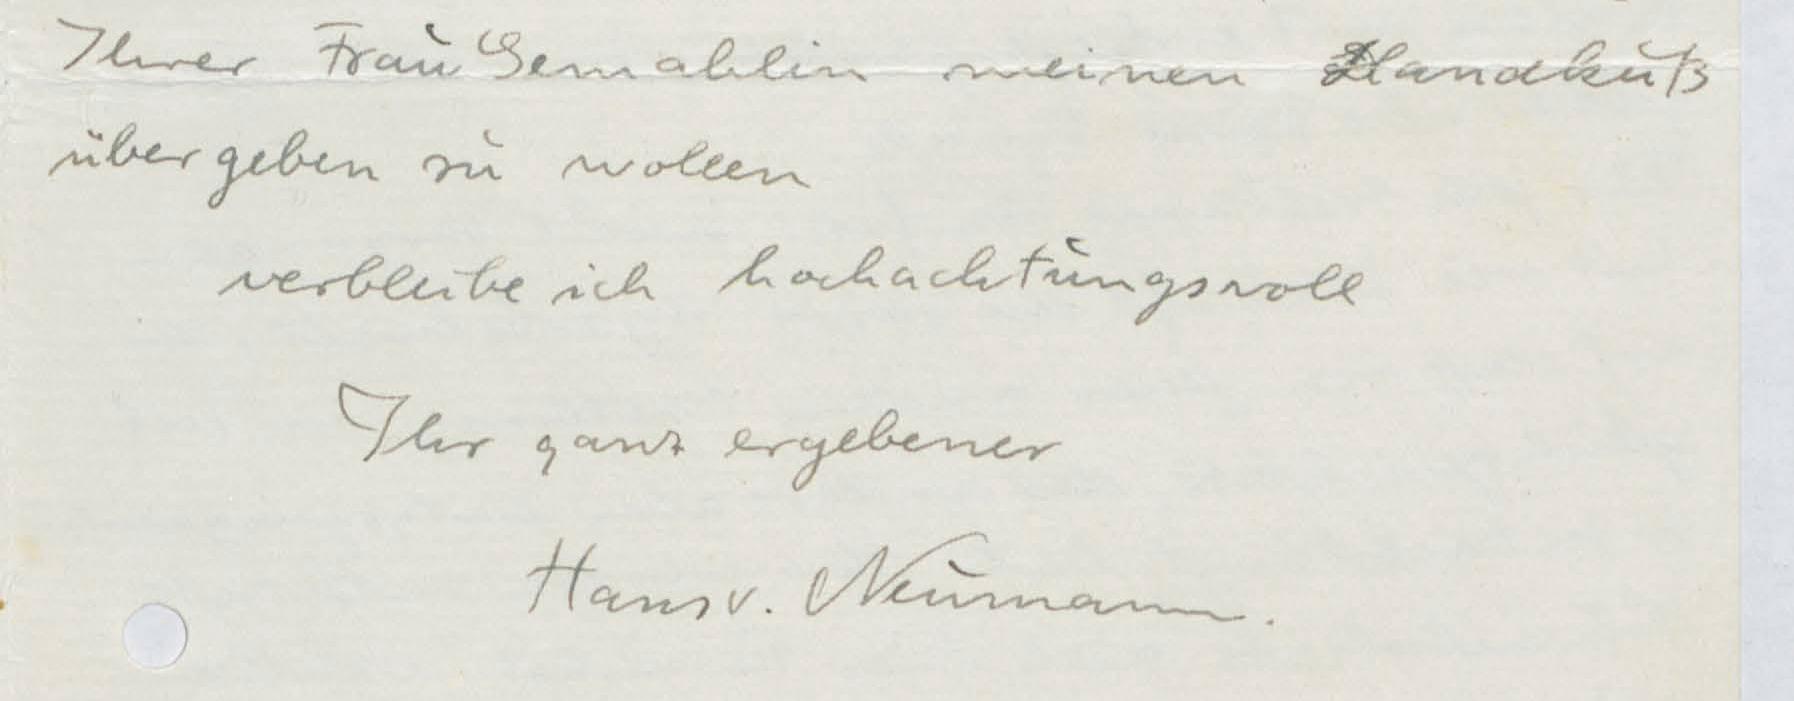 Ihrer Frau Gemahlin meinen Handkuß
übergeben zu wollen
verbleibe ich hochachtungsvoll
Ihr ganz ergebener
Hans v. Neumann.